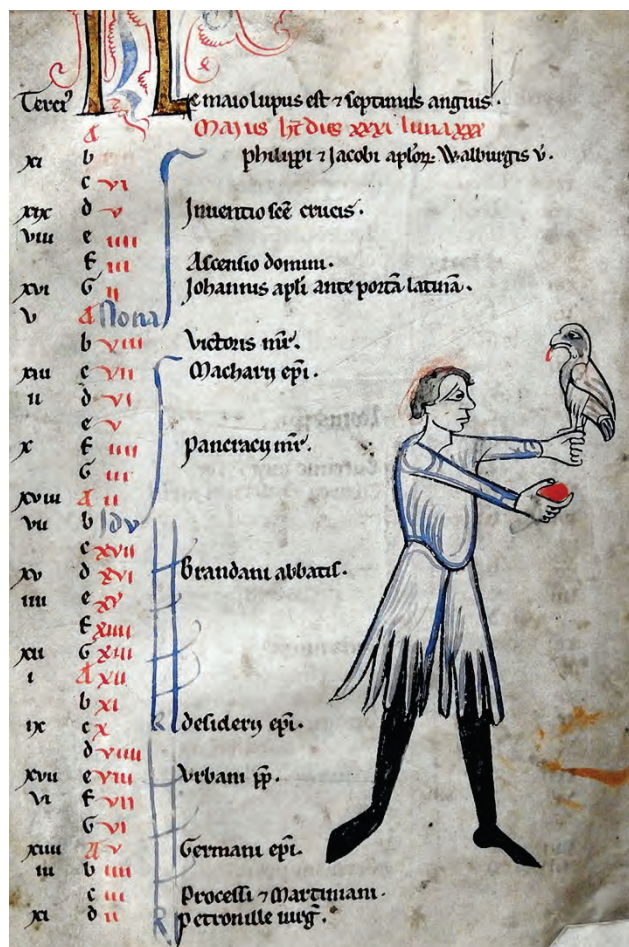 KL
Terci⁹ e maio lupus est ⁊ septimus anguis.
Majus ht dies xxxi luna xxx
A
xi b philippi ⁊ Jacobi aploꝝ. Walburgis v̄.
c vi
xix d v Inuentio sc̄e crucis.
viii e iiii
f iii Ascensio domini.
xvi G ii Johannis apl̄i ante portā latinā.
v A Nona
b viii Victoris mr̄.
xiii c vii Macharij epī.
ii d vi
e v
x f iiii pancracij mr̄.
G iii
xviii A ii
vii b Idv
c xvii
xv d xvi Brandani abbatis.
iiii e xv
f xiiii
xii G xiii
i A xii
b xi
ix c x desiderij epī.
d viiii
xvii e viii Vrbani pp̄.
vi f vii
G vi
xiiii A v Germani epī.
iii b iiii
c iii Processi ⁊ Martiniani.
xi d ii petronille uirḡ.